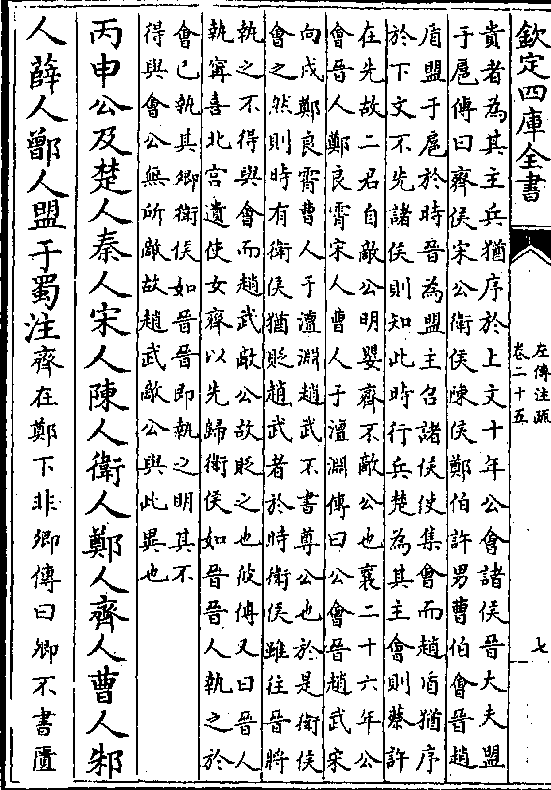 欽定四庫全書
左傳注疏
卷二十五
七
貴者為其主兵猶序於上文十年公會諸侯晉大夫盟
于扈傳曰齊侯宋公衛侯陳侯鄭伯許男曹伯會晉趙
盾盟于扈於時晉為盟主召諸侯使集會而趙盾猶序
於下文不先諸侯則知此時行兵楚為其主會則蔡許
在先故二君自敵公明嬰齊不敵公也襄二十六年公
會晉人鄭良霄宋人曹人于澶淵傳曰公會晉趙武宋
向戌鄭良霄曹人于澶淵趙武不書尊公也於是衛侯
會之然則時有衛侯猶貶趙武者於時衛侯雖往晉將
執之不得與會而趙武敵公故貶之也彼傳又曰晉人
執甯喜北宮遺使女齊以先歸衛侯如晉晉人執之於
會已執其卿衛侯如晉晉即執之明其不
得與會公無所敵故趙武敵公與此異也
丙申公及楚人秦人宋人陳人衛人鄭人齊人曹人邾
人薛人鄫人盟于蜀注齊在鄭下非卿傳曰卿不書匱